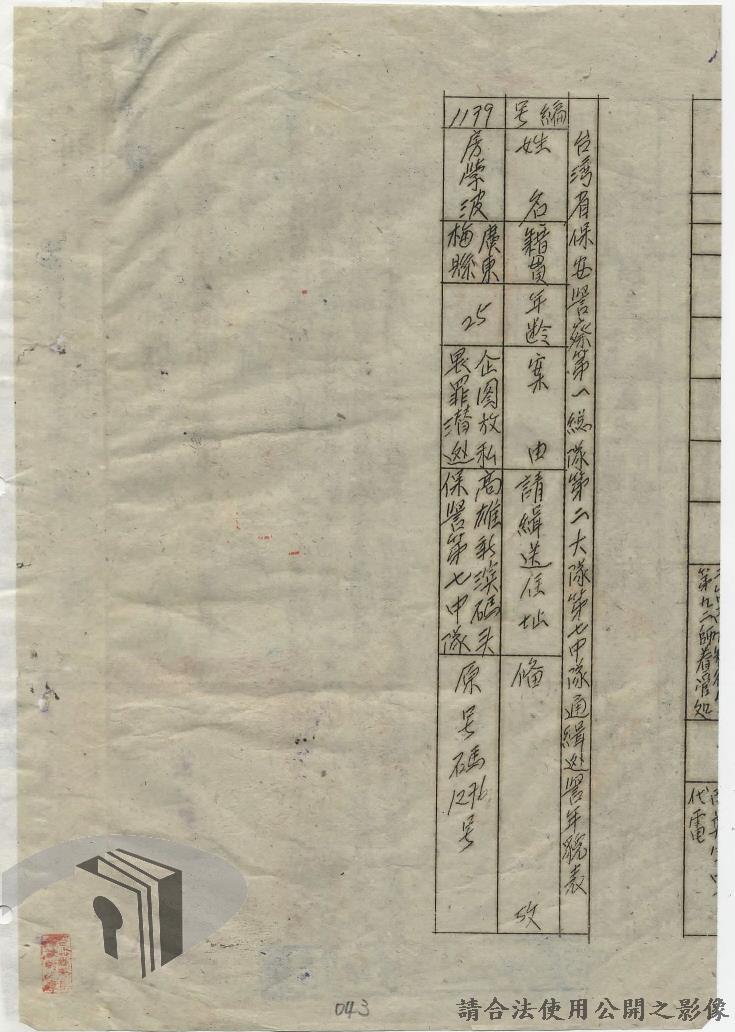 第九二師看管處
代電
台湾省保安警察第一総隊第二大隊第七中隊通緝逃警年貌表
編号
姓名
籍貫
年齡
案由
請緝送住址
備攷
1139
房榮波
廣東
梅縣
25
企图放私
畏罪潜逃
高雄新濱碼头
保警第七中隊
原号碼1276号
043
請合法使用公開之影像